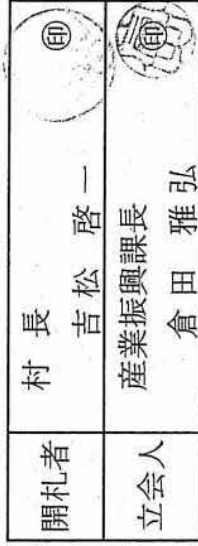 開札者
村長
吉松 啓一 ㊞
立会人
産業振興課長
倉田 雅弘 ㊞